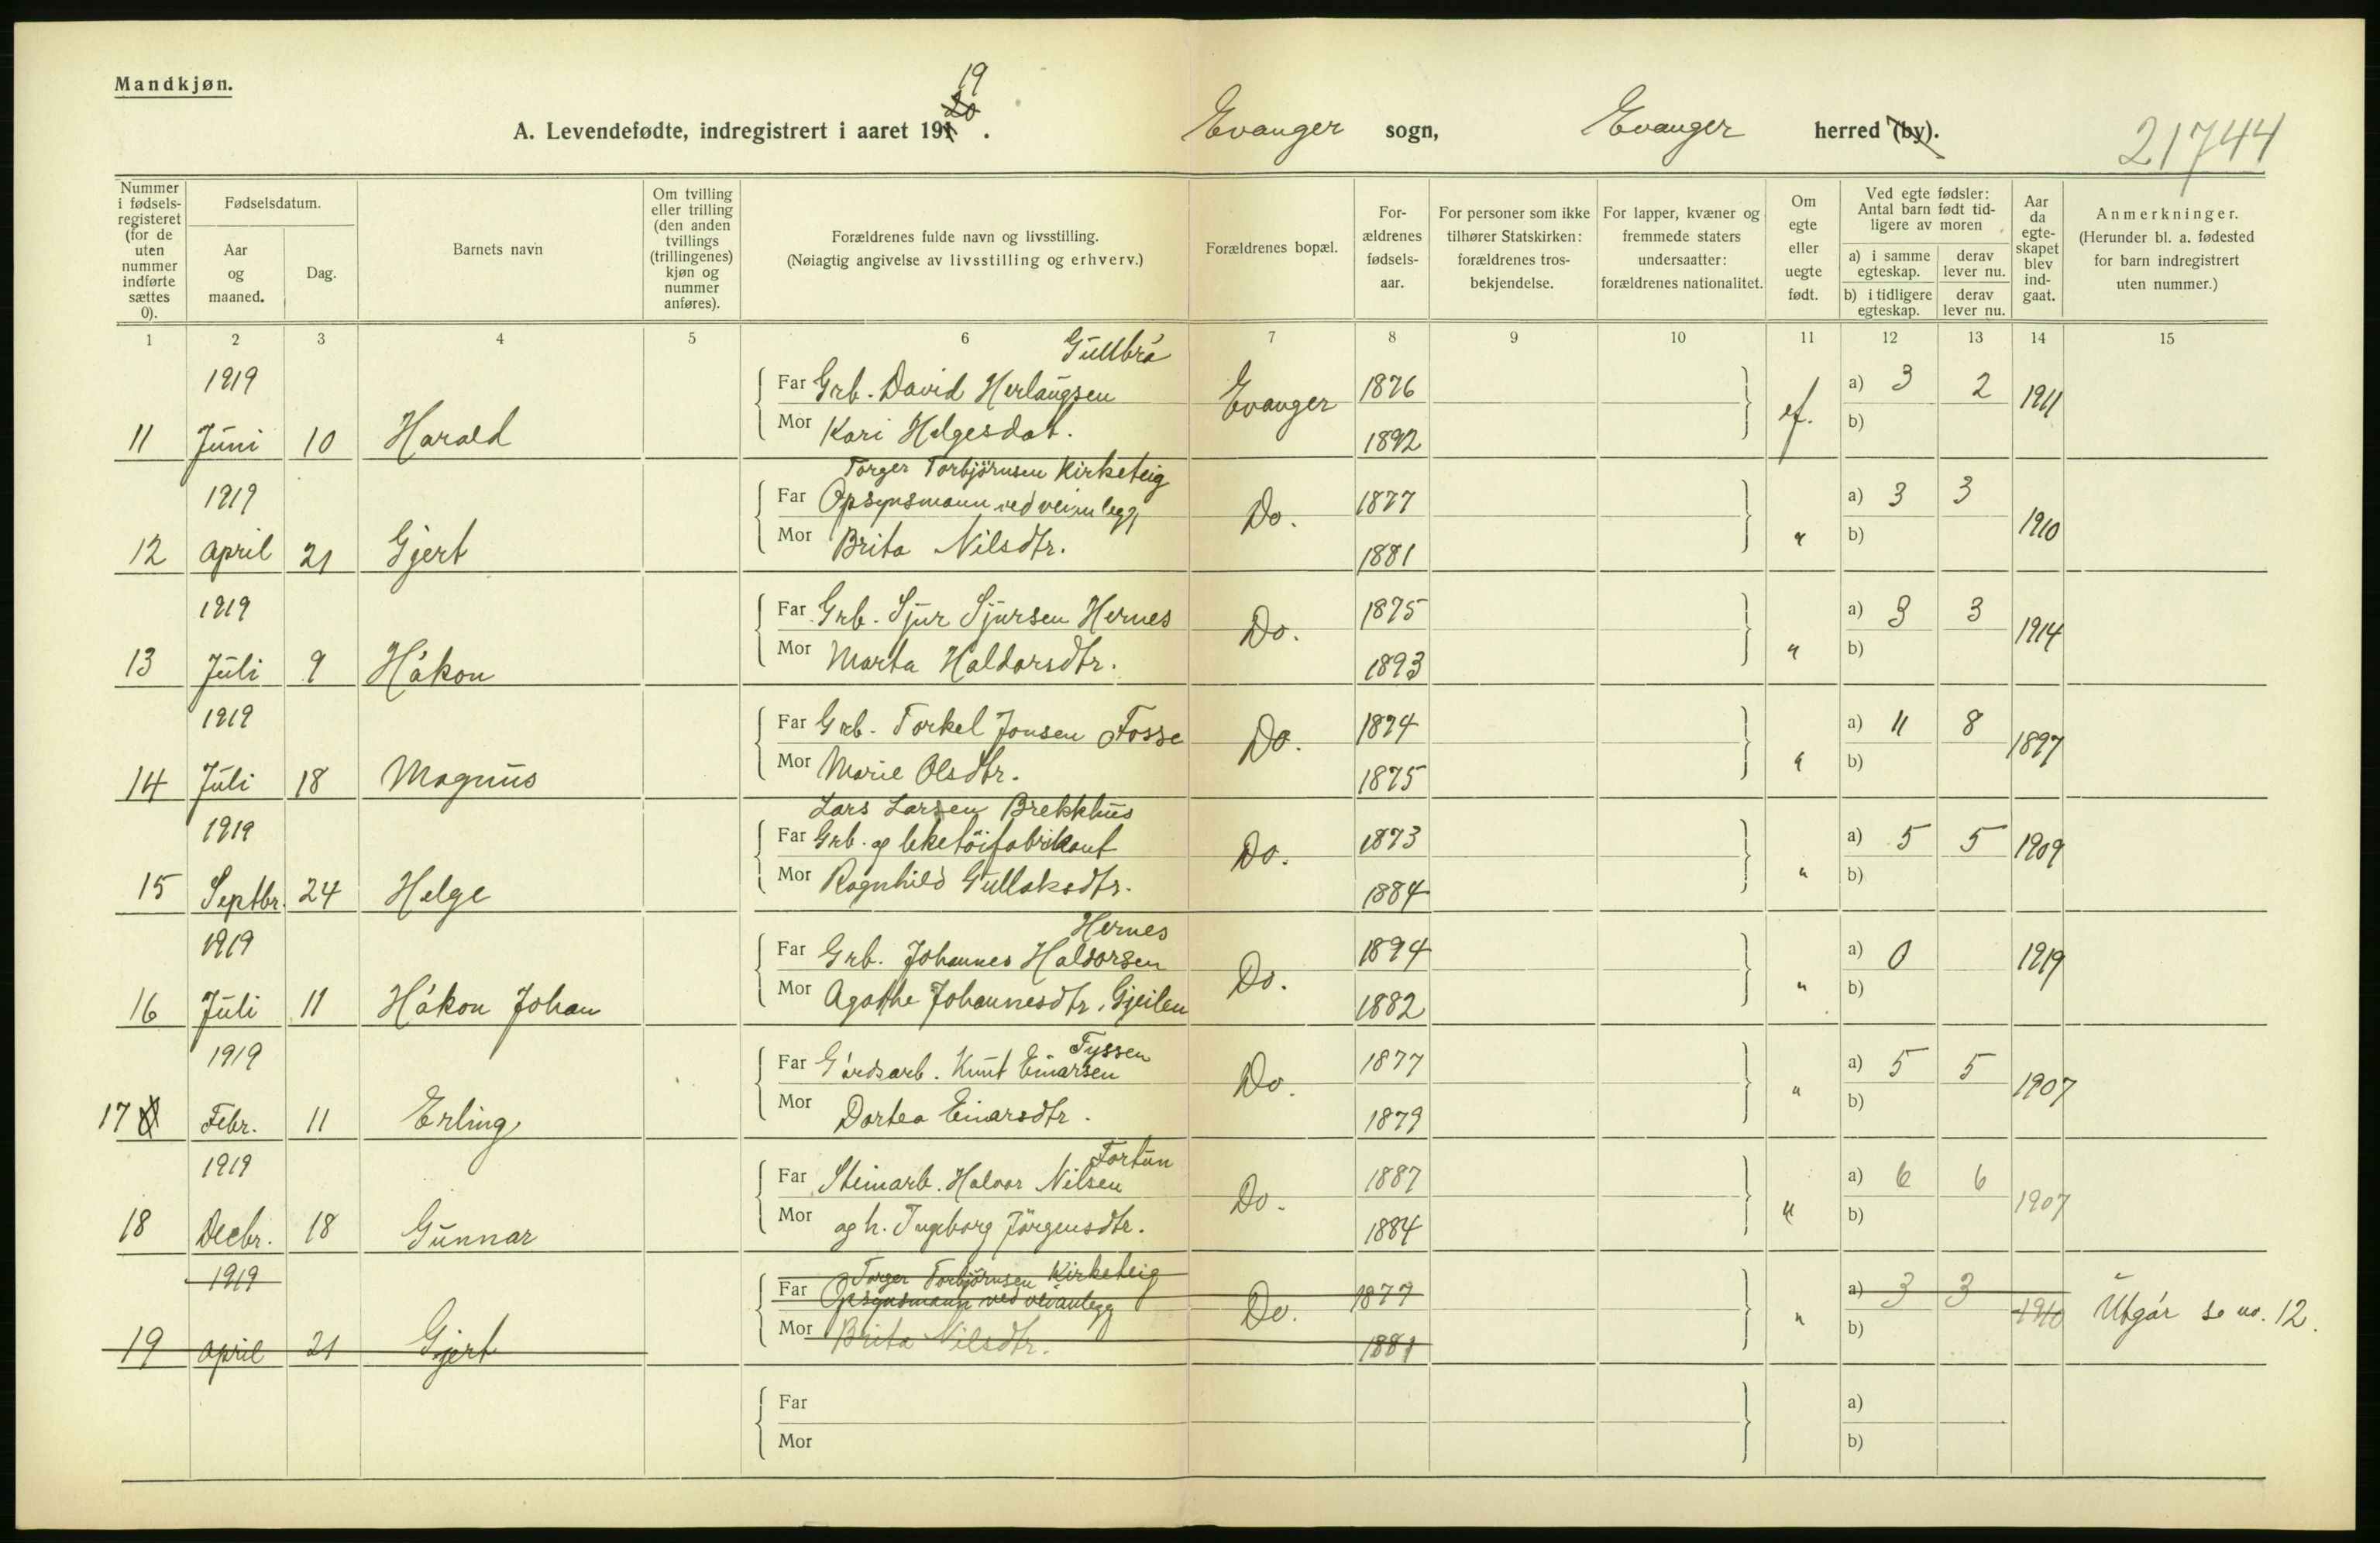 Mandkjøn.
A. Levendefødte, indregistrert i aaret 19 19.
Evanger sogn, Evanger herred (by).
21744
Nummer i fødsels-registeret (for de uten nummer indførte sættes 0).
Fødselsdatum.
Aar og maaned.
Dag.
Barnets navn
Om tvilling eller trilling (den anden tvillings (trillingenes) kjøn og nummer anføres).
Forældrenes fulde navn og livsstilling.
(Nøiagtig angivelse av livsstilling og erhverv.)
Forældrenes bopæl.
For-ældrenes fødsels-aar.
For personer som ikke tilhører Statskirken: forældrenes tros-bekjendelse.
For lapper, kvæner og fremmede staters undersaatter: forældrenes nationalitet.
Om egte eller uegte født.
Ved egte fødsler: Antal barn født tid-ligere av moren
a) i samme egteskap.
derav lever nu.
b) i tidligere egteskap.
derav lever nu.
Aar da egte-skapet blev ind-gaat.
Anmerkninger.
(Herunder bl. a. fødested for barn indregistrert uten nummer.)
1 2 3 4 5 6 7 8 9 10 11 12 13 14 15
Gullbrå
1919 Far Grb. David Herlaugsen Evanger 1876 a) 3 2 1911
11 Juni 10 Harald Mor Kari Helgesdat. 1892 ef. b)
Torger Torbjörnsen Kirketeig
1919 Far Opsynsmann ved veianlegg Do. 1877 a) 3 3 1910
12 April 21 Gjert Mor Brita Nilsdtr. 1881 " b)
1919 Far Grb. Sjur Sjursen Hernes Do. 1875 a) 3 3 1914
13 Juli 9 Håkon Mor Marta Haldorsdtr. 1893 " b)
1919 Far Grb. Torkel Jonsen Fosse Do. 1874 a) 11 8 1897
14 Juli 18 Magnus Mor Marie Olsdtr. 1875 " b)
Lars Larsen Brekkhus
1919 Far Grb. og leketöifabrikant Do. 1873 a) 5 5 1909
15 Septbr. 24 Helge Mor Ragnhild Gullaksdtr. 1884 " b)
Hernes
1919 Far Grb. Johannes Haldorsen Do. 1894 a) 0 1919
16 Juli 11 Håkon Johan Mor Agathe Johannesdtr. Gjeilen 1882 " b)
Tyssen
1919 Far Gårdsarb. Knut Einarsen Do. 1877 a) 5 5 1907
17 Febr. 11 Erling Mor Dortea Einarsdtr. 1879 " b)
Fortun
1919 Far Steinarb. Halvor Nilsen Do. 1887 a) 6 6 1907
18 Decbr. 18 Gunnar Mor og h. Ingeborg Jörgensdtr. 1884 " b)
Torger Torbjörnsen Kirketeig
1919 Far Opsynsmann ved veianlegg Do. 1877 a) 3 3 1910 Utgår se no. 12.
19 April 21 Gjert Mor Brita Nilsdtr. 1881 " b)
Far a)
Mor b)